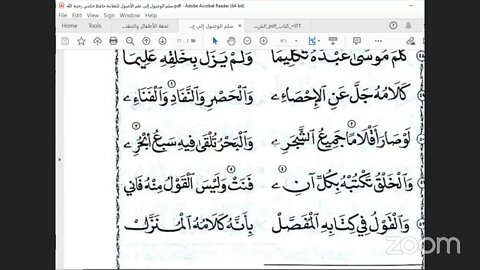 سلم الوصول إلى علم الأصول للعلامة حافظ حكمي رحمه الله.pdf - Adobe Acrobat Reader (64-bit)
سلم الوصول إلى ع... تحفة الأطفال والمقد...
كَلَّمَ مُوسَى عَبْدَهُ تَكْلِيمَا وَلَمْ يَزَلْ بِخَلْقِهِ عَلِيمَا
كَلَامُهُ جَلَّ عَنِ الْإِحْصَاءِ وَالْحَصْرِ وَالنَّفَادِ وَالْفَنَاءِ
لَوْ صَارَ أَقْلَامًا جَمِيعُ الشَّجَرِ وَالْبَحْرُ تُلْقَى فِيهِ سَبْعُ أَبْحُرِ
وَالْخَلْقُ تَكْتُبْهُ بِكُلِّ آنِ فَنَتْ وَلَيْسَ الْقَوْلُ مِنْهُ فَانِي
وَالْقَوْلُ فِي كِتَابِهِ الْمُفَصَّلْ بِأَنَّهُ كَلَامُهُ الْمُنَزَّلْ
zoom